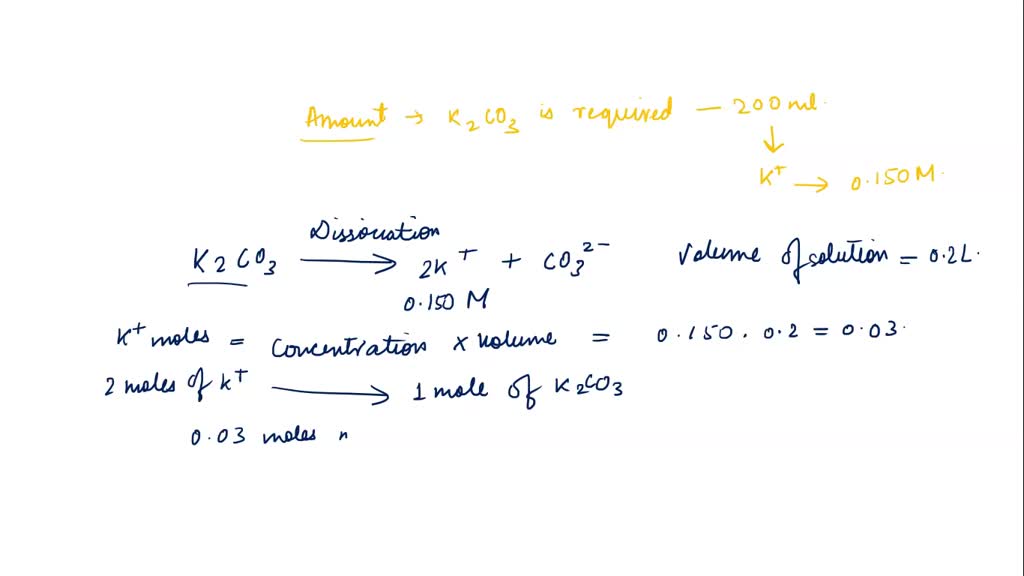 Amount → K2CO3 is required — 200 ml.
↓
K+ → 0.150 M.
Dissociation
K2CO3 → 2K+ + CO3 2- Volume of solution = 0.2L.
0.150 M
K+ moles = Concentration x Volume = 0.150 . 0.2 = 0.03.
2 moles of K+ → 1 mole of K2CO3
0.03 moles